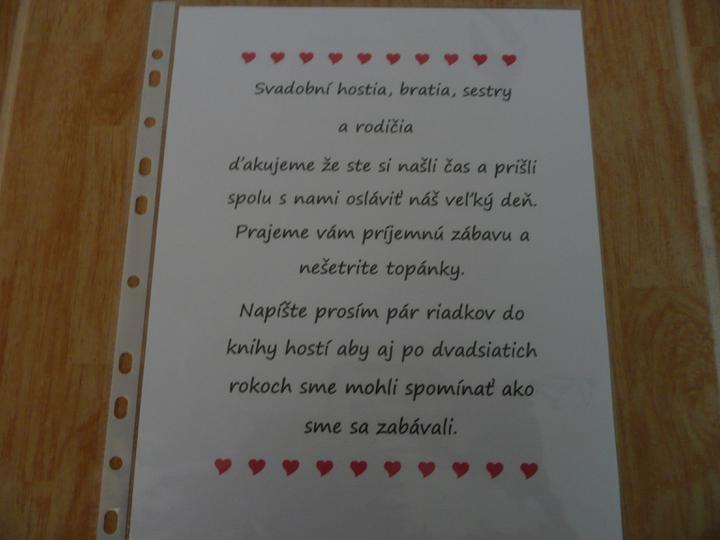 Svadobní hostia, bratia, sestry
a rodičia
ďakujeme že ste si našli čas a prišli
spolu s nami osláviť náš veľký deň.
Prajeme vám príjemnú zábavu a
nešetrite topánky.
Napíšte prosím pár riadkov do
knihy hostí aby aj po dvadsiatich
rokoch sme mohli spomínať ako
sme sa zabávali.